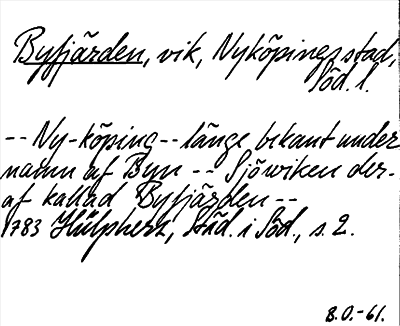 Byfjärden, vik, Nyköpings stad,
Söd. l.
-- Ny-köping -- länge bekant under
namn af Byn -- Sjöwiken der-
af kallad Byfjärden --
1783 Hülpherz, Städ. i Söd., s. 2.
8.0.-61.